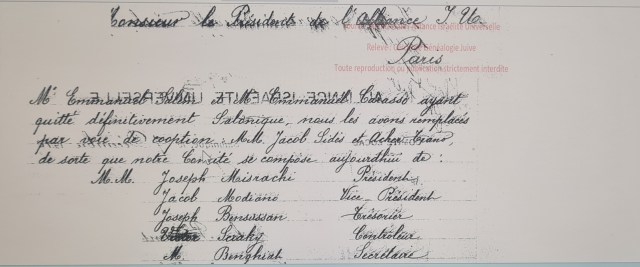 Monsieur le Président de l'Alliance I. U.
Alliance Israélite Universelle
Relevé Généalogie Juive
Paris
Toute reproduction ou publication strictement interdite
ALLIANCE ISRAELITE UNIVERSELLE
Mr Emmanuel et Mr Emmanuel Carasso ayant
quitté définitivement Salonique, nous les avons remplacés
par voie de cooption M.M. Jacob Sidès et Acher
de sorte que notre Comité se compose aujourdhui de :
M. M. Joseph Misrachi Président
Jacob Modiano Vice-Président
Joseph Bensassan Trésorier
Contrôleur
M. Benghiat Secrétaire